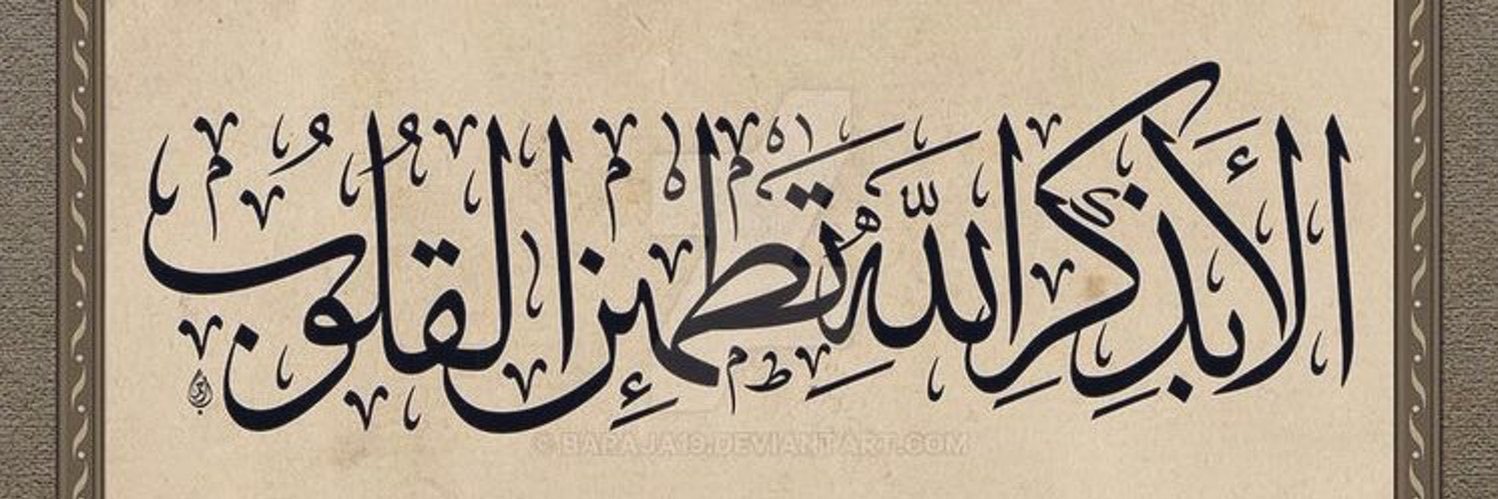 ألا بذكر الله تطمئن القلوب
© BARAJA19.DEVIANTART.COM